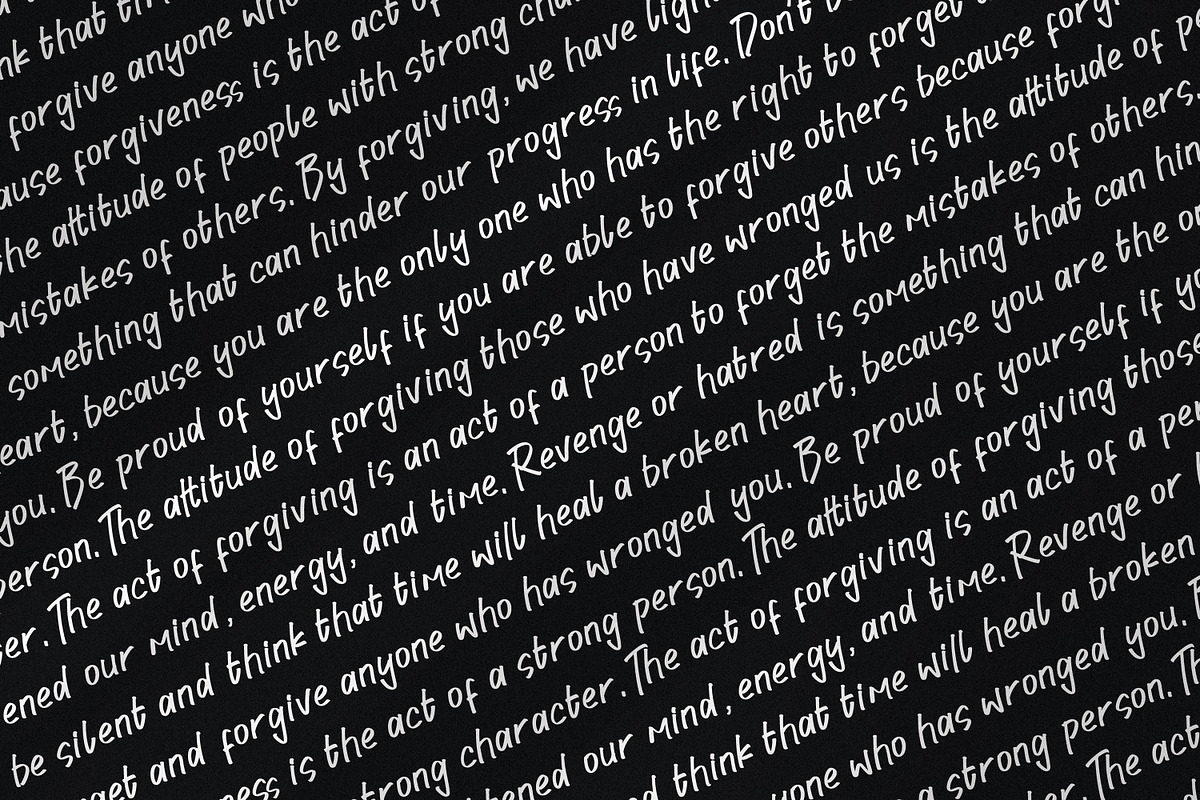 nk that tim
forgive anyone who
ause forgiveness is the act of
the attitude of people with strong cha
mistakes of others. By forgiving, we have light
something that can hinder our progress in life. Don't b
eart, because you are the only one who has the right to forget a
you. Be proud of yourself if you are able to forgive others because forgi
person. The attitude of forgiving those who have wronged us is the attitude of pe
ter. The act of forgiving is an act of a person to forget the mistakes of others.
ened our mind, energy, and time. Revenge or hatred is something that can hin
be silent and think that time will heal a broken heart, because you are the on
get and forgive anyone who has wronged you. Be proud of yourself if yo
ness is the act of a strong person. The attitude of forgiving those
strong character. The act of forgiving is an act of a per
tened our mind, energy, and time. Revenge or
d think that time will heal a broken
yone who has wronged you.
a strong person. Th
er. The act